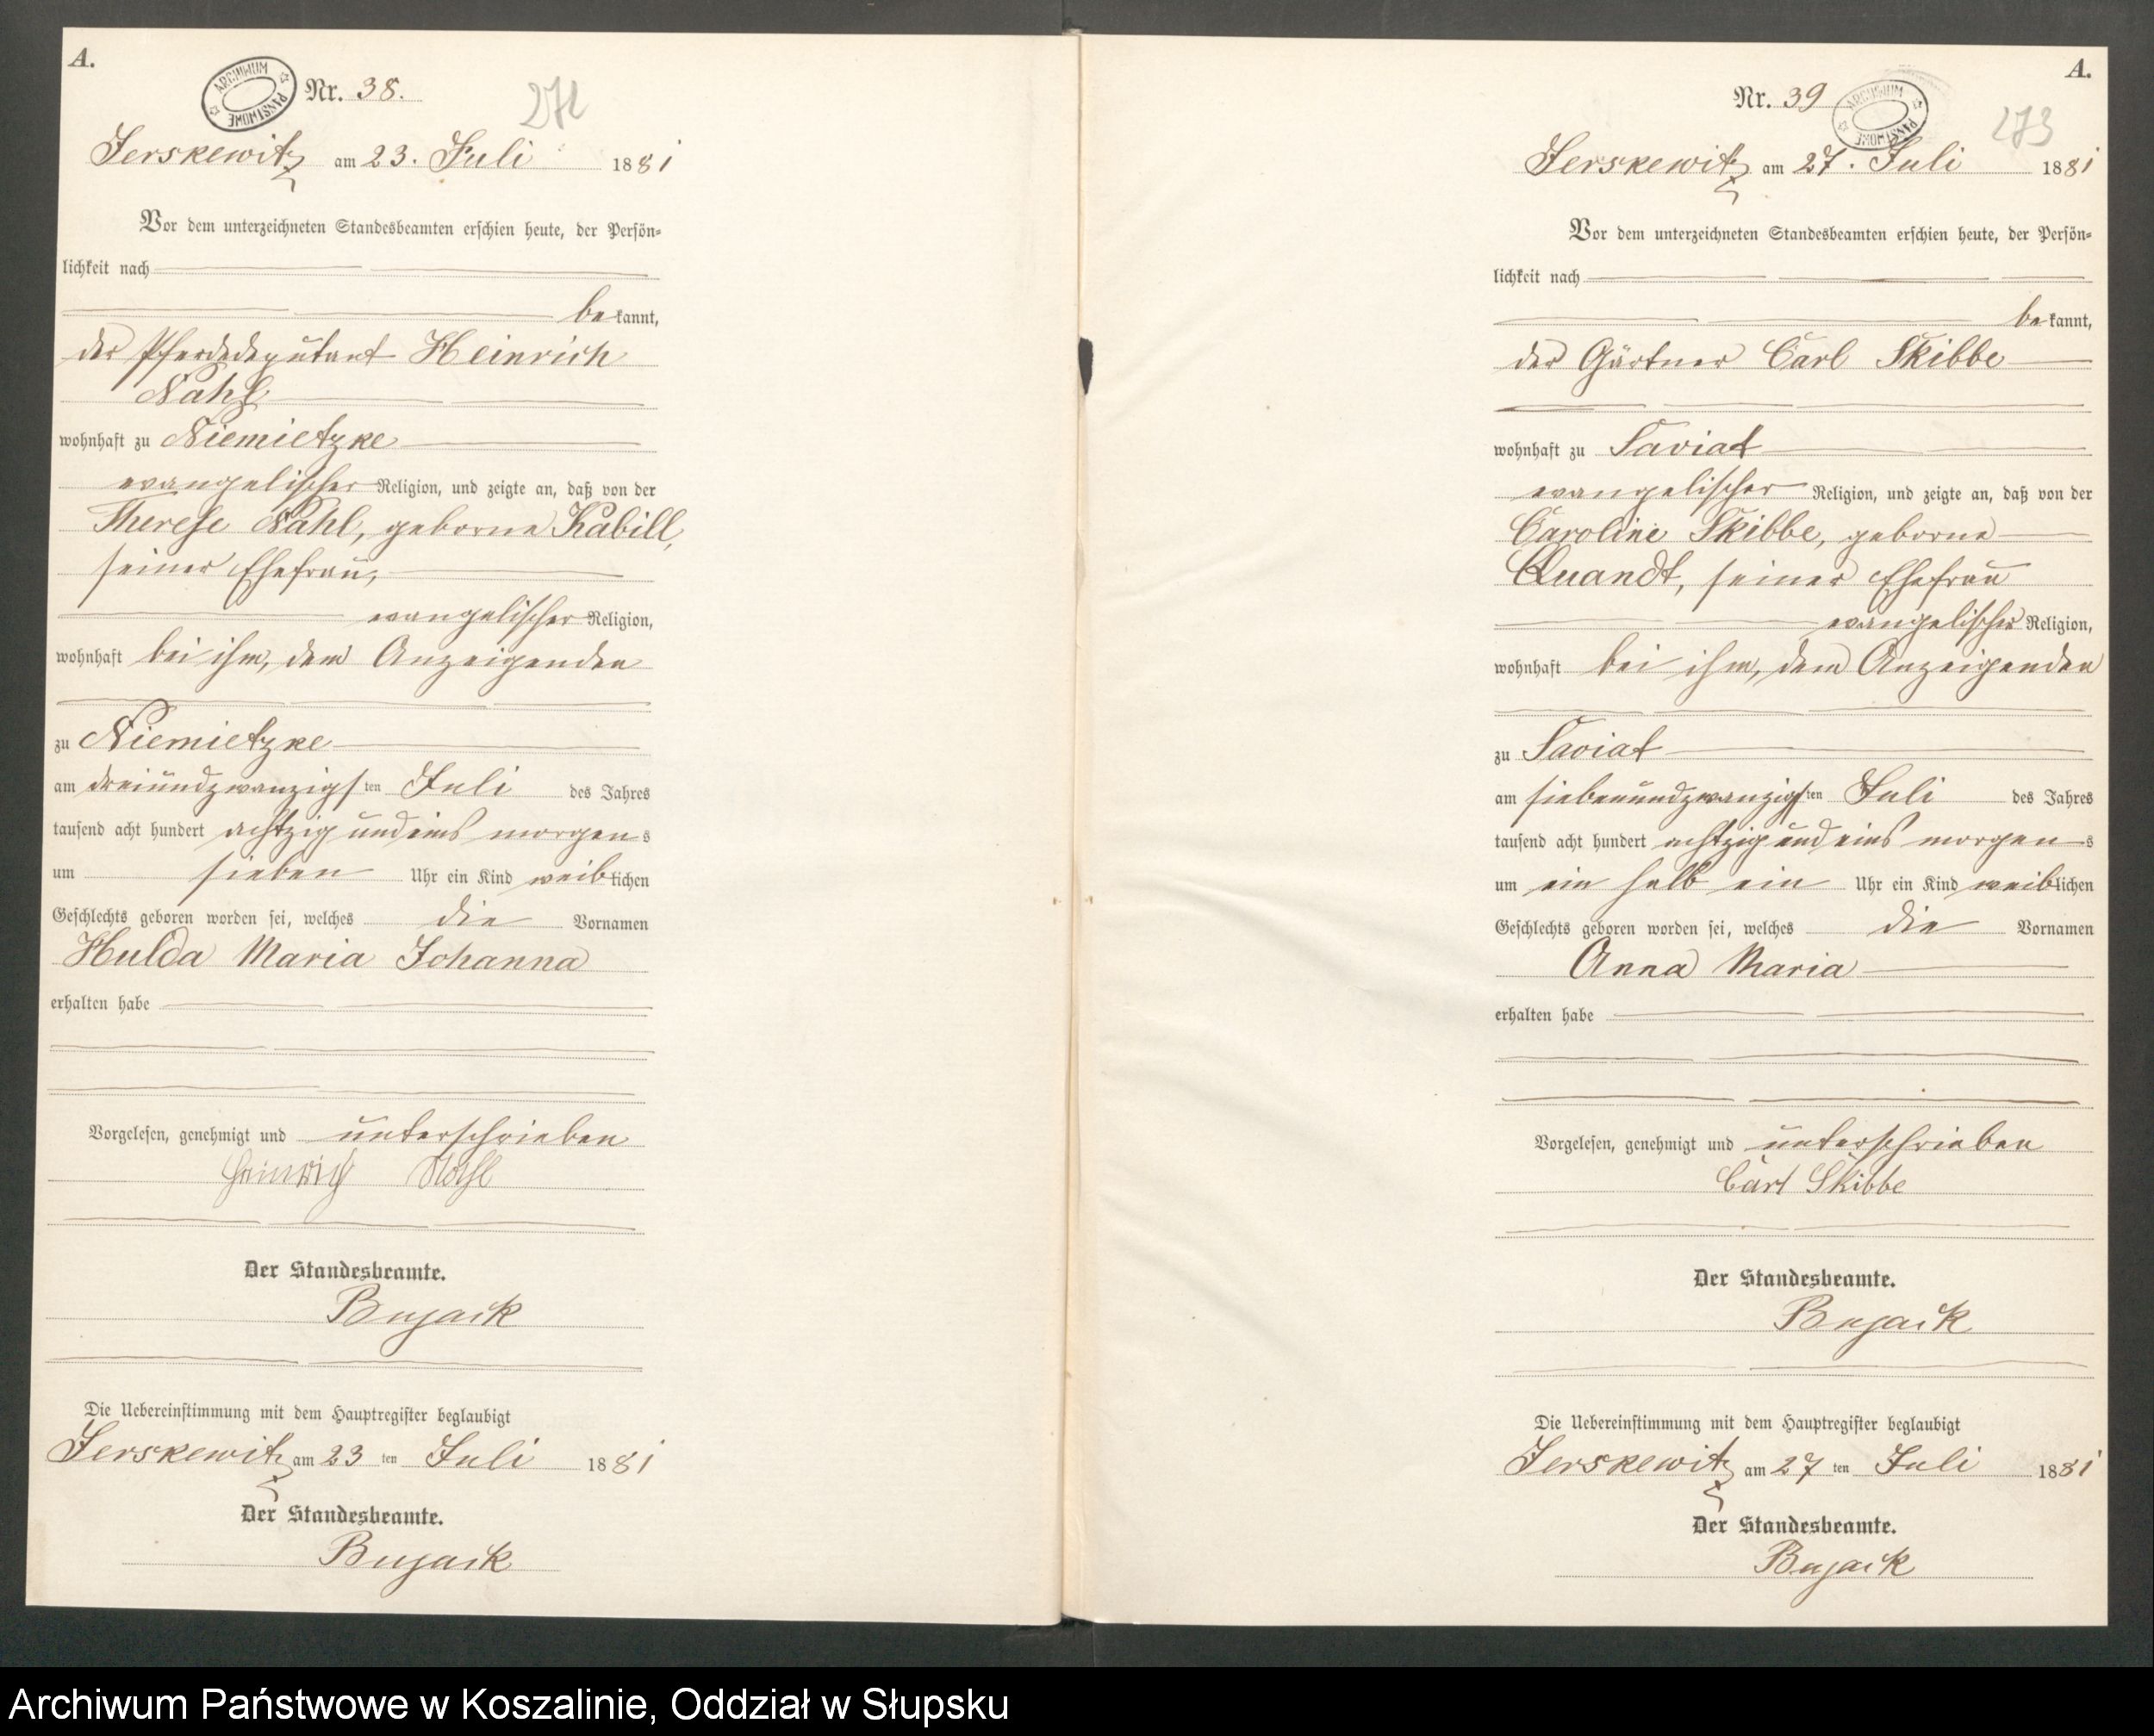 A.
ARCHIWUM PAŃSTWOWE
Nr. 38.
272
Jerskewitz am 23. Juli 1881
Vor dem unterzeichneten Standesbeamten erschien heute, der Persön-
lichkeit nach
bekannt,
der Pferdedeputant Heinrich
Nahl
wohnhaft zu Niemietzke
evangelischer Religion, und zeigte an, daß von der
Therese Nahl, geborne Kabill,
seiner Ehefrau,
evangelischer Religion,
wohnhaft bei ihm, dem Anzeigenden
zu Niemietzke
am dreiundzwanzigsten Juli des Jahres
tausend acht hundert achtzig und eins morgens
um sieben Uhr ein Kind weiblichen
Geschlechts geboren worden sei, welches die Vornamen
Hulda Maria Johanna
erhalten habe
Vorgelesen, genehmigt und unterschrieben
Heinrich Nahl
Der Standesbeamte.
Bujack
Die Uebereinstimmung mit dem Hauptregister beglaubigt
Jerskewitz am 23 ten Juli 1881
Der Standesbeamte.
Bujack
A.
Nr. 39
ARCHIWUM PAŃSTWOWE
273
Jerskewitz am 27. Juli 1881
Vor dem unterzeichneten Standesbeamten erschien heute, der Persön-
lichkeit nach
bekannt,
der Gärtner Carl Skibbe
wohnhaft zu Saviat
evangelischer Religion, und zeigte an, daß von der
Caroline Skibbe, geborne
Quandt, seiner Ehefrau
evangelischer Religion,
wohnhaft bei ihm, dem Anzeigenden
zu Saviat
am siebenundzwanzigsten Juli des Jahres
tausend acht hundert achtzig und eins morgens
um ein halb ein Uhr ein Kind weiblichen
Geschlechts geboren worden sei, welches die Vornamen
Anna Maria
erhalten habe
Vorgelesen, genehmigt und unterschrieben
Carl Skibbe
Der Standesbeamte.
Bujack
Die Uebereinstimmung mit dem Hauptregister beglaubigt
Jerskewitz am 27 ten Juli 1881
Der Standesbeamte.
Bujack
Archiwum Państwowe w Koszalinie, Oddział w Słupsku